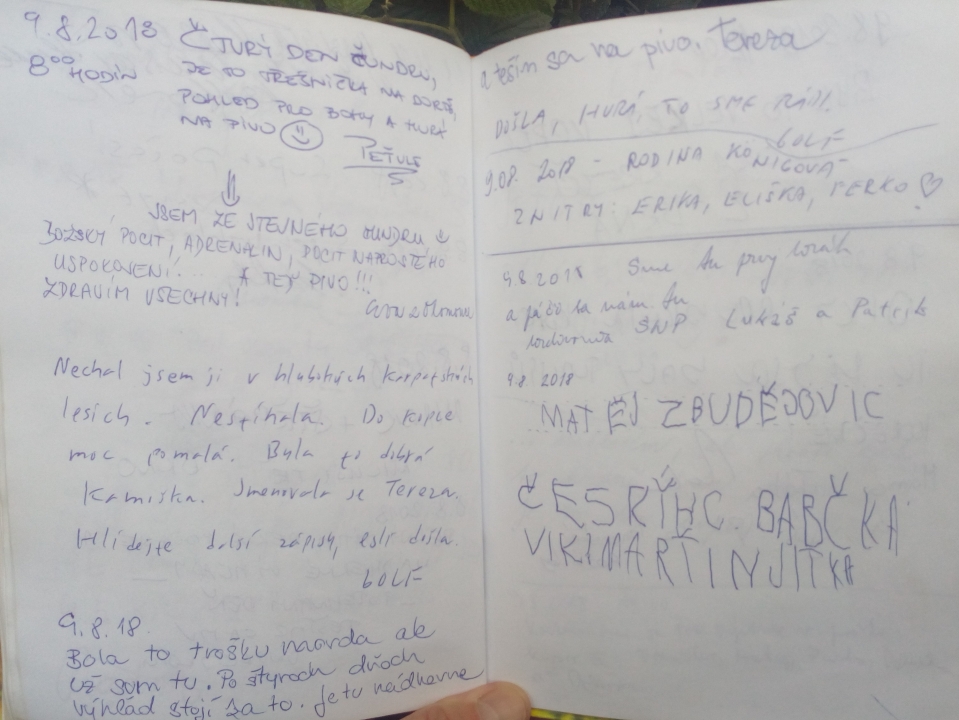 9.8.2018 ČTURÝ DEN ČUNDRU,
8⁰⁰ HODIN JE TO TŘEŠNIČKA NA DORTĚ,
POHLED PRO BOHY A HURÁ
NA PIVO ☺
PEŤULE
JSEM ZE STEJNÉHO ČUNDRU
BOŽSKÝ POCIT, ADRENALIN, POCIT NAPROSTÉHO
USPOKOJENÍ!.... A TEĎ PIVO!!!
ZDRAVÍM VŠECHNY!
z Olomouce
Nechal jsem ji v hlubokých Karpatských
lesích. Nestíhala. Do kopce
moc pomalá. Byla to dobrá
Kamoška. Jmenovala se Tereza.
Hlídejte další zápisy, esli došla.
BOLEK
9.8.18.
Bola to trošku narvda ale
už som tu. Po štyroch dňoch
výhlad stojí za to. Je tu nádherne
a teším sa na pivo. Tereza
DOŠLA, HURÁ, TO SME RÁDI.
9.08. 2018 - RODINA KONIGOVÁ
Z NITRY: ERIKA, ELIŠKA, PERKO ♡
9.8.2018 Sme tu prvý
a páči sa nám tu
SNP Lukáš a Patrik
9.8. 2018
MATĚJ Z BUDĚJOVIC
ČESKÝHC. BABČKA
VIKI MARTIN JITKA